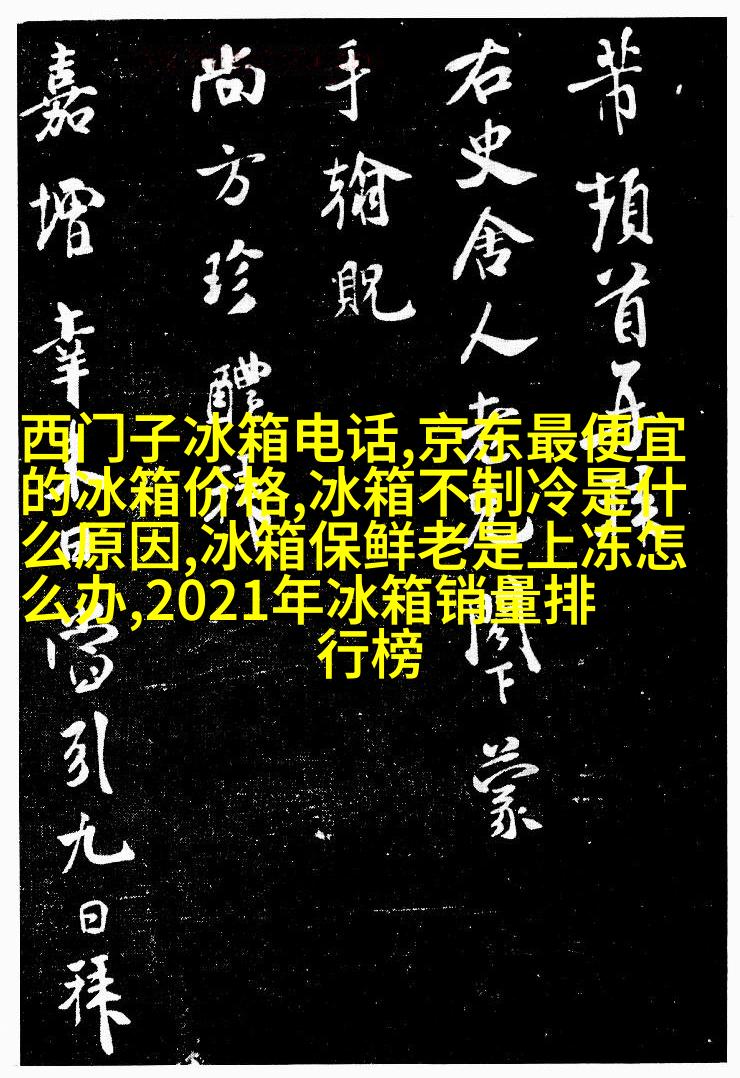 芾頓首再
右史舍人老兄閣下蒙
手翰貺
尚方珍醴
嘉增幸來日當引九日拜
西门子冰箱电话,京东最便宜
的冰箱价格,冰箱不制冷是什
么原因,冰箱保鲜老是上冻怎
么办,2021年冰箱销量排
行榜